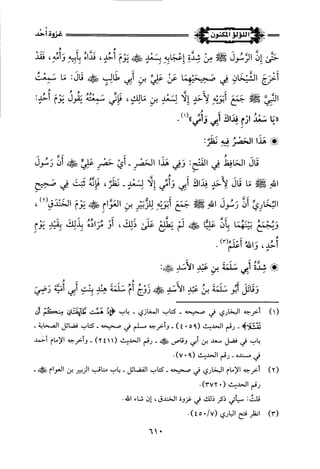 اللؤلؤ المكنون
غزوة أحد
حَتَّى إِنَّ الرَّسُولَ ﷺ مِنْ شِدَّةِ إِعْجَابِهِ بِسَعْدٍ ﵁ يَوْمَ أُحُدٍ، فَدَّاهُ بِأَبِيهِ وَأُمِّهِ، فَقَدْ
أَخْرَجَ الشَّيْخَانِ فِي صَحِيحَيْهِمَا عَنْ عَلِيِّ بنِ أَبِي طَالِبٍ ﵁ قَالَ: مَا سَمِعْتُ
النَّبِيَّ ﷺ جَمَعَ أَبَوَيْهِ لِأَحَدٍ إِلَّا لِسَعْدِ بنِ مَالِكٍ، فَإِنِّي سَمِعْتُهُ يَقُولُ يَوْمَ أُحُدٍ:
«يَا سَعْدُ ارْمِ فِدَاكَ أَبِي وَأُمِّي»(١).
◉ هَذَا الحَصْرُ فِيهِ نَظَرٌ:
قَالَ الحَافِظُ فِي الفَتْحِ: وَفِي هَذَا الحَصْرِ ـ أَيْ حَصْرِ عَلِيٍّ ﵁ أَنَّ رَسُولَ
اللهِ ﷺ مَا قَالَ لِأَحَدٍ فِدَاكَ أَبِي وَأُمِّي إِلَّا لِسَعْدٍ ـ نَظَرٌ، فَإِنَّهُ ثَبَتَ فِي صَحِيحِ
البُخَارِيِّ أَنَّ رَسُولَ اللهِ ﷺ جَمَعَ أَبَوَيْهِ لِلزُّبَيْرِ بنِ العَوَّامِ ﵁ يَوْمَ الخَنْدَقِ(٢)،
وَيُجْمَعُ بَيْنَهُمَا بِأَنَّ عَلِيًّا ﵁ لَمْ يَطَّلِعْ عَلَى ذَلِكَ، أَوْ مُرَادُهُ بِذَلِكَ بِقَيْدِ يَوْمِ
أُحُدٍ، وَاللهُ أَعْلَمُ(٣).
◉ شِدَّةُ أَبِي سَلَمَةَ بنِ عَبْدِ الأَسَدِ ﵁:
وَقَاتَلَ أَبُو سَلَمَةَ بنُ عَبْدِ الأَسَدِ ﵁ زَوْجُ أُمِّ سَلَمَةَ هِنْدِ بِنْتِ أَبِي أُمَيَّةَ رَضِيَ
(١) أخرجه البخاري في صحيحه ـ كتاب المغازي ـ باب ﴿إِذْ هَمَّت طَّائِفَتَانِ مِنكُمْ أَن
تَفْشَلَا﴾ ـ رقم الحديث (٤٠٥٩) ـ وأخرجه مسلم في صحيحه ـ كتاب فضائل الصحابة ـ
باب في فضل سعد بن أبي وقاص ﵁ ـ رقم الحديث (٢٤١١) ـ وأخرجه الإمام أحمد
في مسنده ـ رقم الحديث (٧٠٩)
(٢) أخرجه الإمام البخاري في صحيحه ـ كتاب الفضائل ـ باب مناقب الزبير بن العوام ﵁ ـ
رقم الحديث (٣٧٢٠)
قلتُ: سيأتي ذكر ذلك في غزوة الخندق، إن شاء الله.
(٣) انظر فتح الباري (٤٥٠/٧)
٦١٠